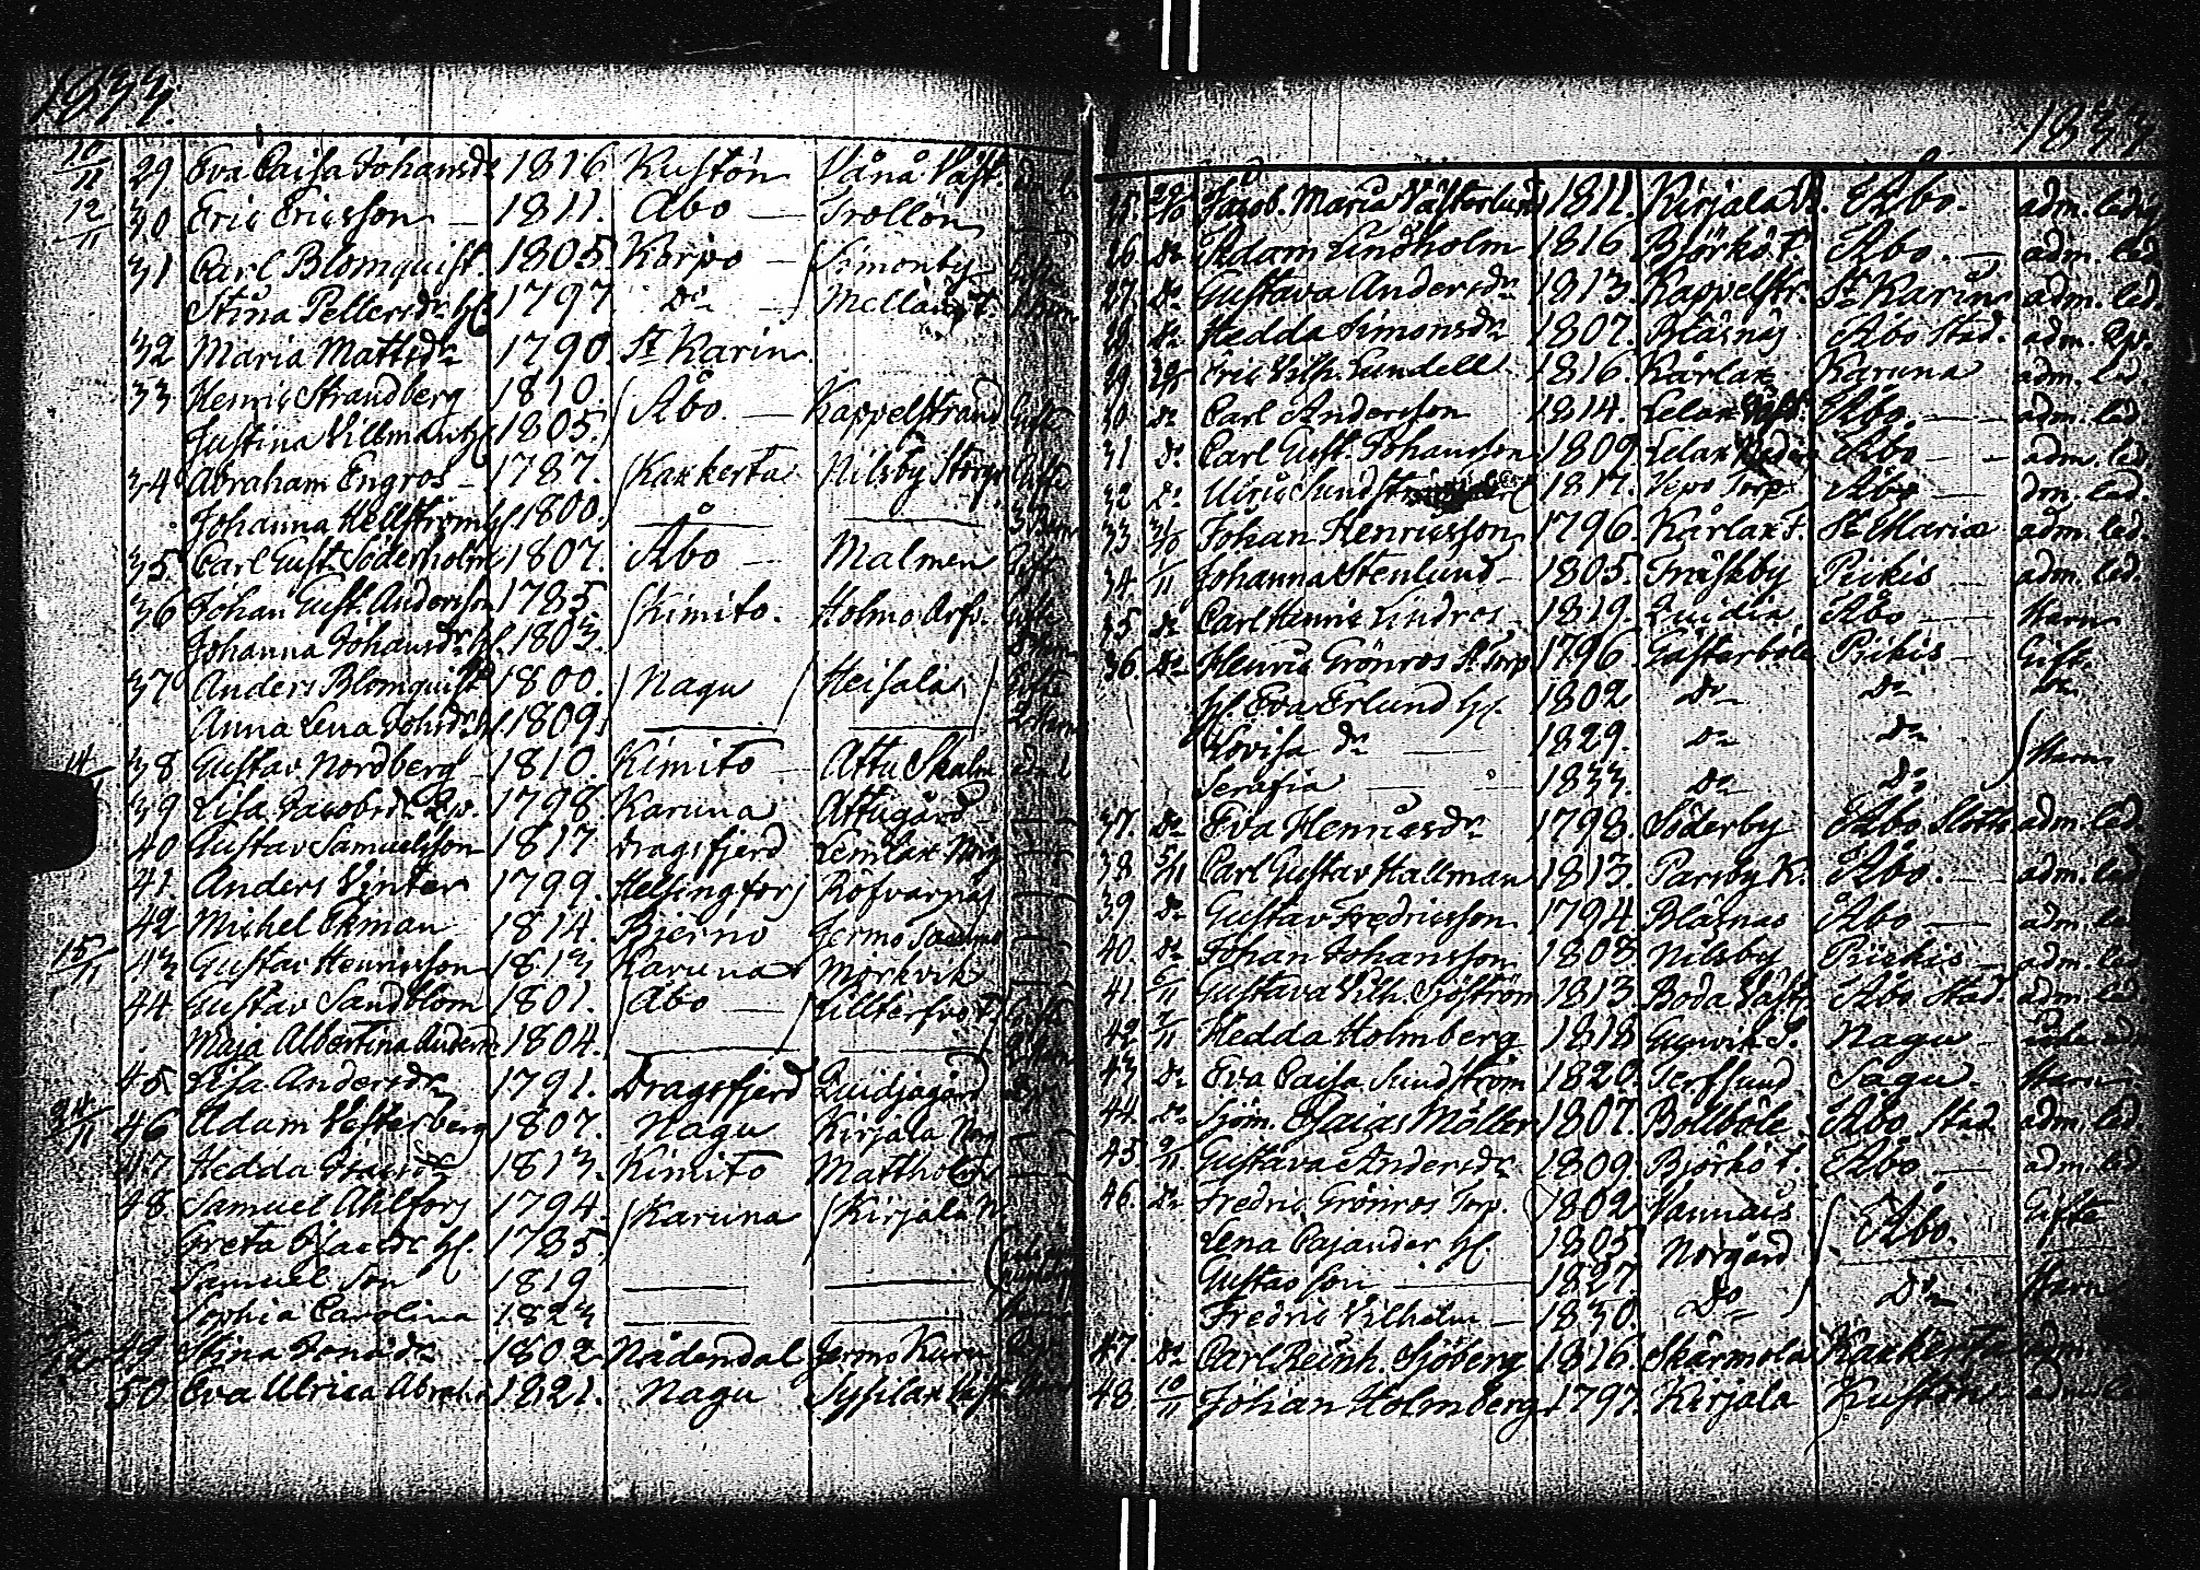 1833.
10/11 29 Eva Caisa Johansdr 1816 Kustön Vånå Väst.
12/11 30 Eric Ericsson — 1811. Åbo — Trollön
31 Carl Blomquist. 1805. Korpo — Simonby
Stina Pettersdr hu 1797 Do — Mellangt.
32 Maria Mattsdr 1790 St Karin
33 Henric Strandberg 1810. Åbo. — Kappelstrand Gifte
Justina Villman hu 1805.
34 Abraham Engros — 1787. Kaxkerta Nilsby Storgr Gifte
Johanna Hellström hu 1800.
35. Carl Gust. Söderholm 1807. Åbo — Malmen Gift
36 Johan Gust. Andersson 1785. Kimito. Holmo Gifte
Johanna Johansdr hu. 1803.
37 Anders Blomquist 1800. Nagu Heisala Gifte
Anna Lena Johsdr hu 1809.
14/11 38 Gustav Nordberg — 1810. Kimito — Attu Skalm
39 Lisa Jacobsdr 1798. Karuna Attugård
40 Gustav Samuelsson 1817 Dragsfjerd Lemlax Norg
41. Anders Vinter 1799. Helsingfors Röfvarnäs —
42 Michel Ekman 1814. Bjerno Jermo —
15/11 43 Gustav Henricsson 1813 Karuna Mörkvik
44 Gustav Sandblom 1801. Åbo — Gifte
Maja Albertina Andersdr 1804.
45. Lisa Andersdr 1791. Dragsfjerd Quidjagård
24/11 46 Adam Vesterberg 1807. Nagu Kirjala Norg —
47. Hedda 1813. Kimito Mattholm —
48. Samuel Ahlfors 1794. Karuna Kirjala N.
Greta Isaacsdr hu. 1785.
Samuel Son 1819 — —
Sophia Carolina 1823 — —
49 Stina Jonasdr 1802 Nådendal Jermo Kuru
50 Eva Ulrica Abrah. 1821. Nagu Sysilax Väst
1833
25. 29/10 Jacob. Maria Västerlund 1811. Kirjala Åbo. adm. ledig
26. Do Adam Lindholm 1816 Björkö T. Åbo. — adm. led.
27. Do Gustava Andersdr 1813. Kappelstr. St Karins adm. led.
28. Do Hedda Simonsdr 1807. Bläsnäs Åbo Stad. adm.
29. Eric Vilh. Lundell 1816. Kårlax Karuna adm. led.
30. Do Carl Andersson 1814. Lelax Väst. Åbo. — adm. led.
31 Do Carl Gust. Johansson 1809 Lelax Åbo — adm. led.
32 Do Ulric Sundström 1817. Vepo Torp Åbo — adm. led.
33. 31/10 Johan Henricsson 1796. Kårlax T. St Mariæ adm. led.
34. 1/11 Johanna Stenlund — 1805. Fräskby Pickis — adm. led.
35 Do Carl Henric Lindros — 1819. Quidia Åbo — Barn
36. Do Henric Grönros St Torp 1796. Gästerböle Pickis — Gift.
Hu. Eva Erlund hu. 1802 Do Do Do
Lovisa dr — 1829. Do Do Barn
Serafia — 1833. Do Do
37. Do Eva Henricsdr 1798. Söderby Åbo Slotts adm. led.
38 5/11 Carl Gustav Hallman 1813. Parsby K. Åbo. — adm. led
39. Do Gustav Fredricsson 1794. Bläsnäs Åbo — adm. led
40. Do Johan Johansson 1803. Nilsby Pickis — adm. led
41. 6/11 Gustava Vilh. Sjöström 1813. Boda Västr. Åbo Stad. adm. led.
42 7/11 Hedda Holmberg 1818 Nagu — icke adm
43 Do Eva Caisa Sundström 1820. Terfsund Sagu. Barn
44. Do Sjöm. Esaias Möller 1807. Bollböle Åbo Stad adm. led
45. 9/11 Gustava Andersdr 1809 Björkö T. Åbo — adm. led.
46. Do Fredric Grönros Torp. 1802 Vannais Åbo. Gifte
Lena Cajander hu. 1805 Norgård
Gustav Son — 1827. Do Do Barn
Fredric Vilhelm — 1830.
47. Do Carl Reinh. Sjöberg 1816. Skärmola Kaxkerta adm.
48. 10/11 Johan Holmberg 1797. Kirjala Kustön adm. led